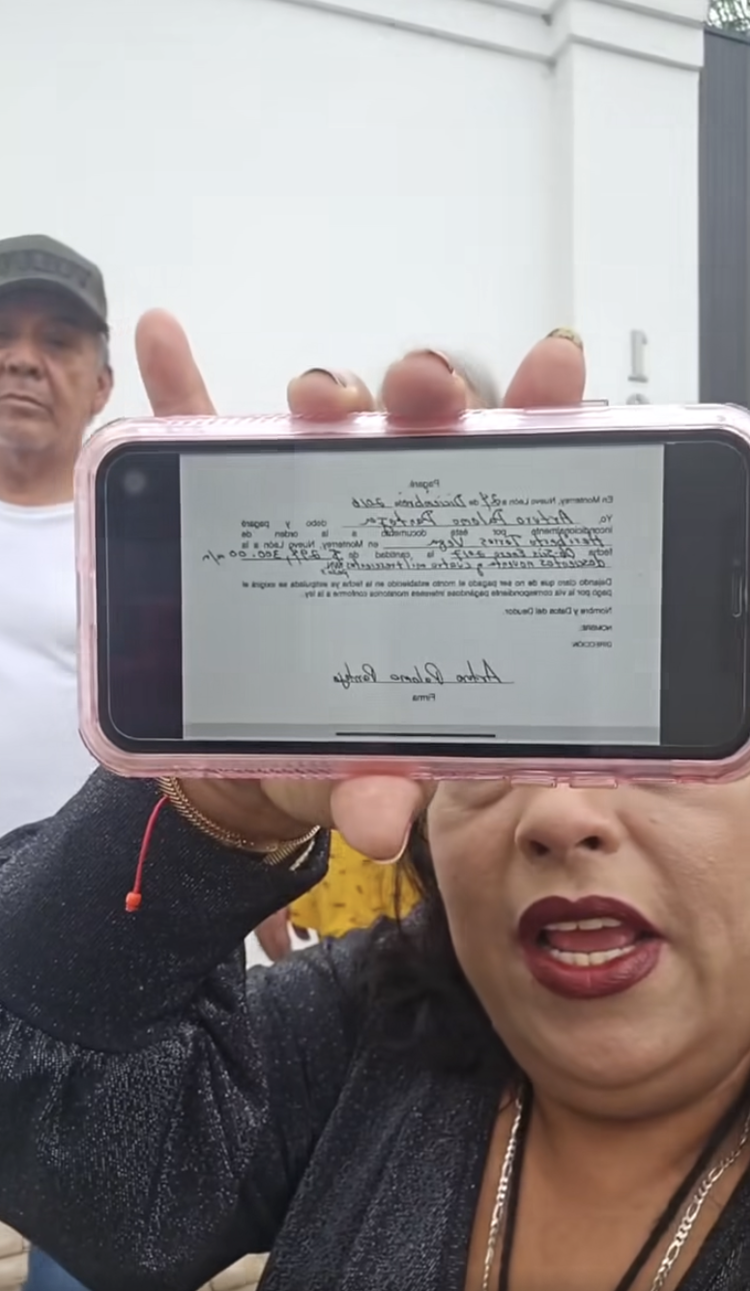 Pagaré
En Monterrey, Nuevo León a 27 de Diciembre 2016
Yo, Arturo Palomo Pantoja debo y pagaré
incondicionalmente por éste documento a la orden de
Heriberto Torres Vega en Monterrey, Nuevo León a la
fecha 06-Sin Enero 2017 la cantidad de $ 294,300.00 m/n
doscientos noventa y cuatro mil trescientos pesos MN
Dejando claro que de no ser pagado el monto establecido en la fecha ya estipulada se exigirá el
pago por la vía correspondiente pagándose intereses moratorios conforme a la ley.
Nombre y Datos del Deudor.
NOMBRE:
DIRECCIÓN:
Arturo Palomo Pantoja
Firma